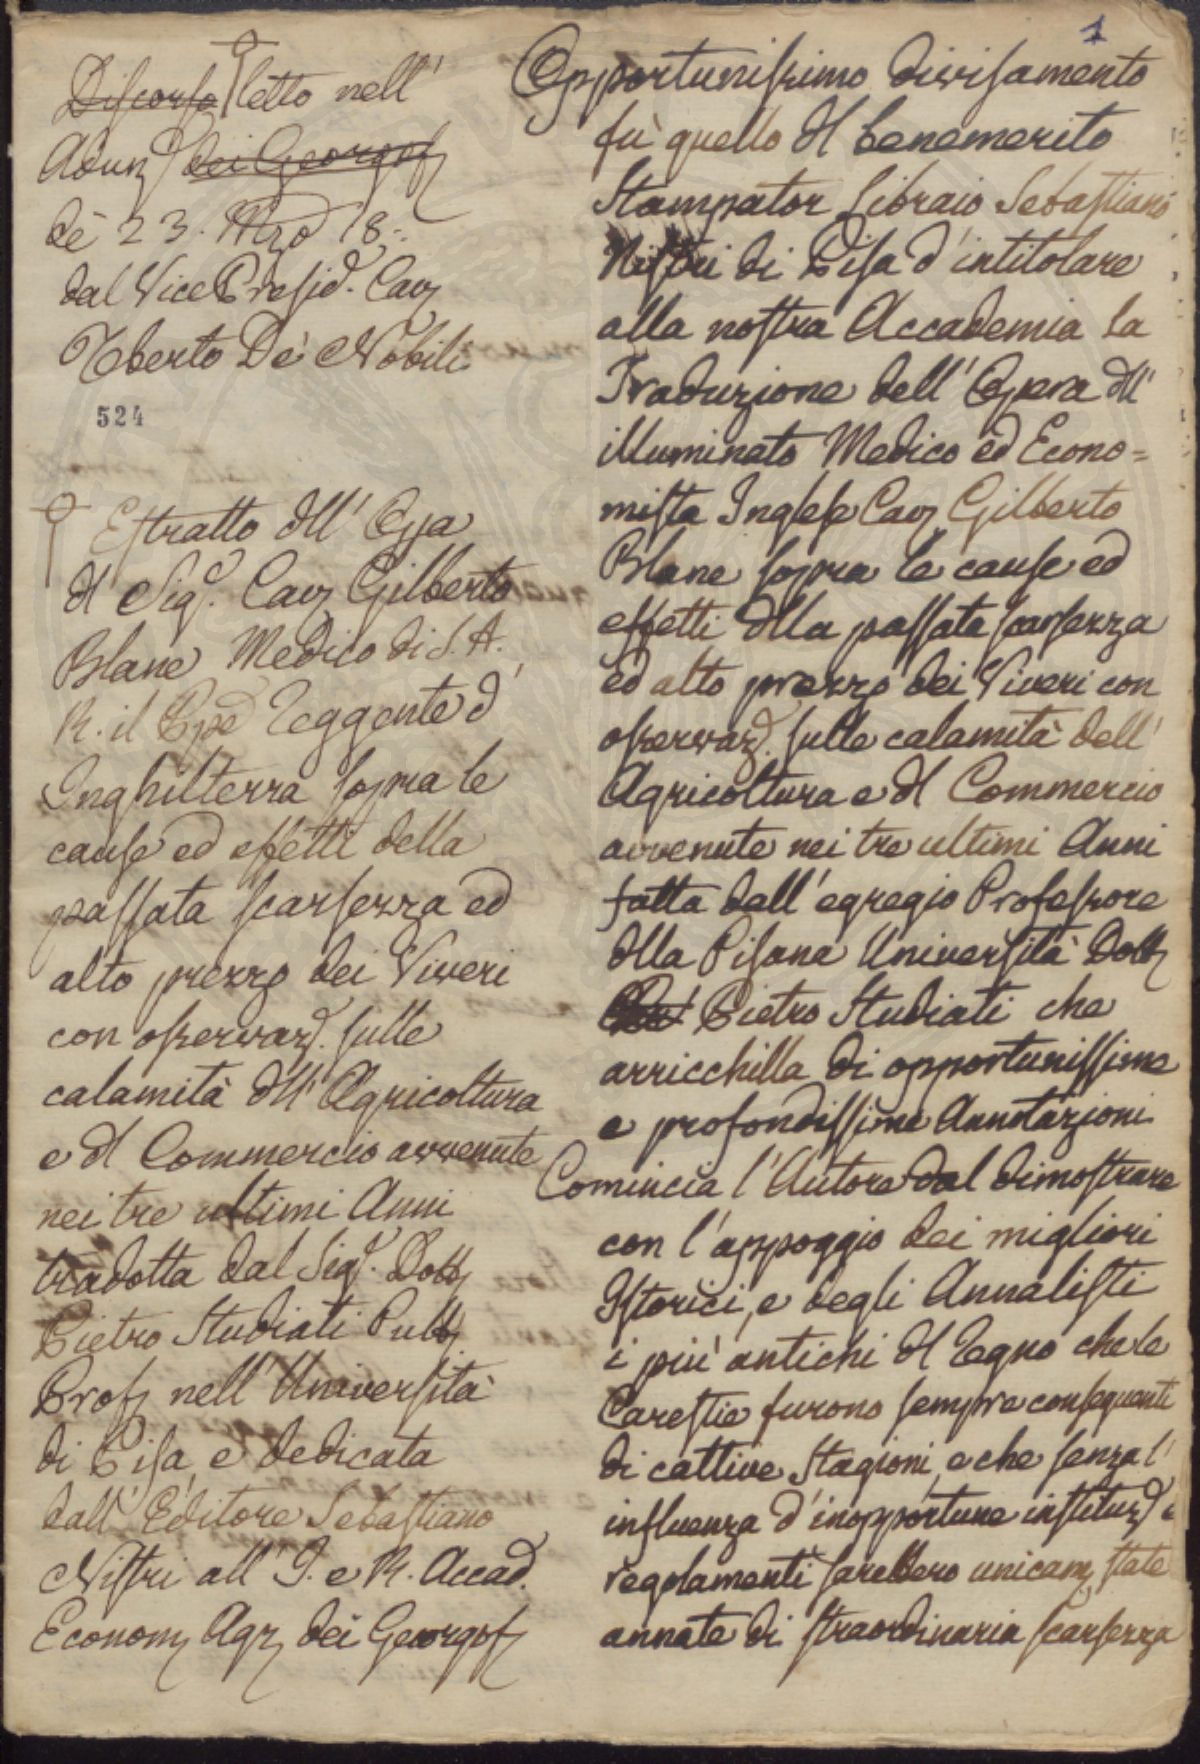 1
Discorso letto nell'
Adunz dei Georgof
de' 23. Mzo 18=
dal Vice Presid. Cav
Uberto De' Nobili
524
Estratto dll' Opa
dl Sigr. Cav Gilberto
Blane Medico di S. A.
R. il Ppe Reggente d'
Inghilterra sopra le
cause ed effetti della
passata scarsezza ed
alto prezzo dei Viveri
con osservaz. sulle
calamità dll' Agricoltura
e dl Commercio avvenute
nei tre ultimi Anni
tradotta dal Sigr. Dott
Pietro Studiati Pubb
Prof nell' Università
di Pisa, e dedicata
dall' Editore Sebastiano
Nistri all' I. e R. Accad.
Econom Agr dei Georgof
Opportunissimo divisamento
fù quello dl benemerito
Stampator Libraio Sebastiano
Nistri di Pisa d'intitolare
alla nostra Accademia la
Traduzione dell' Opera dll'
illuminato Medico ed Econo=
mista Inglese Cav Gilberto
Blane sopra le cause ed
effetti dlla passata scarsezza
ed alto prezzo dei Viveri con
osservaz. sulle calamità dell'
Agricoltura e dl Commercio
avvenute nei tre ultimi Anni
fatta dall' egregio Professore
dlla Pisana Università Dott
Pietro Studiati che
arricchilla di opportunissime
e profondissime Annotazioni
Comincia l'Autore dal dimostrare
con l'appoggio dei migliori
Istorici, e degli Annalisti
i più antichi dl Regno che le
Carestie furono sempre conseguenti
di cattive Stagioni, e che senza l'
influenza d'inopportune instituz. e
regolamenti sarebbero unicam state
annate di straordinaria scarsezza